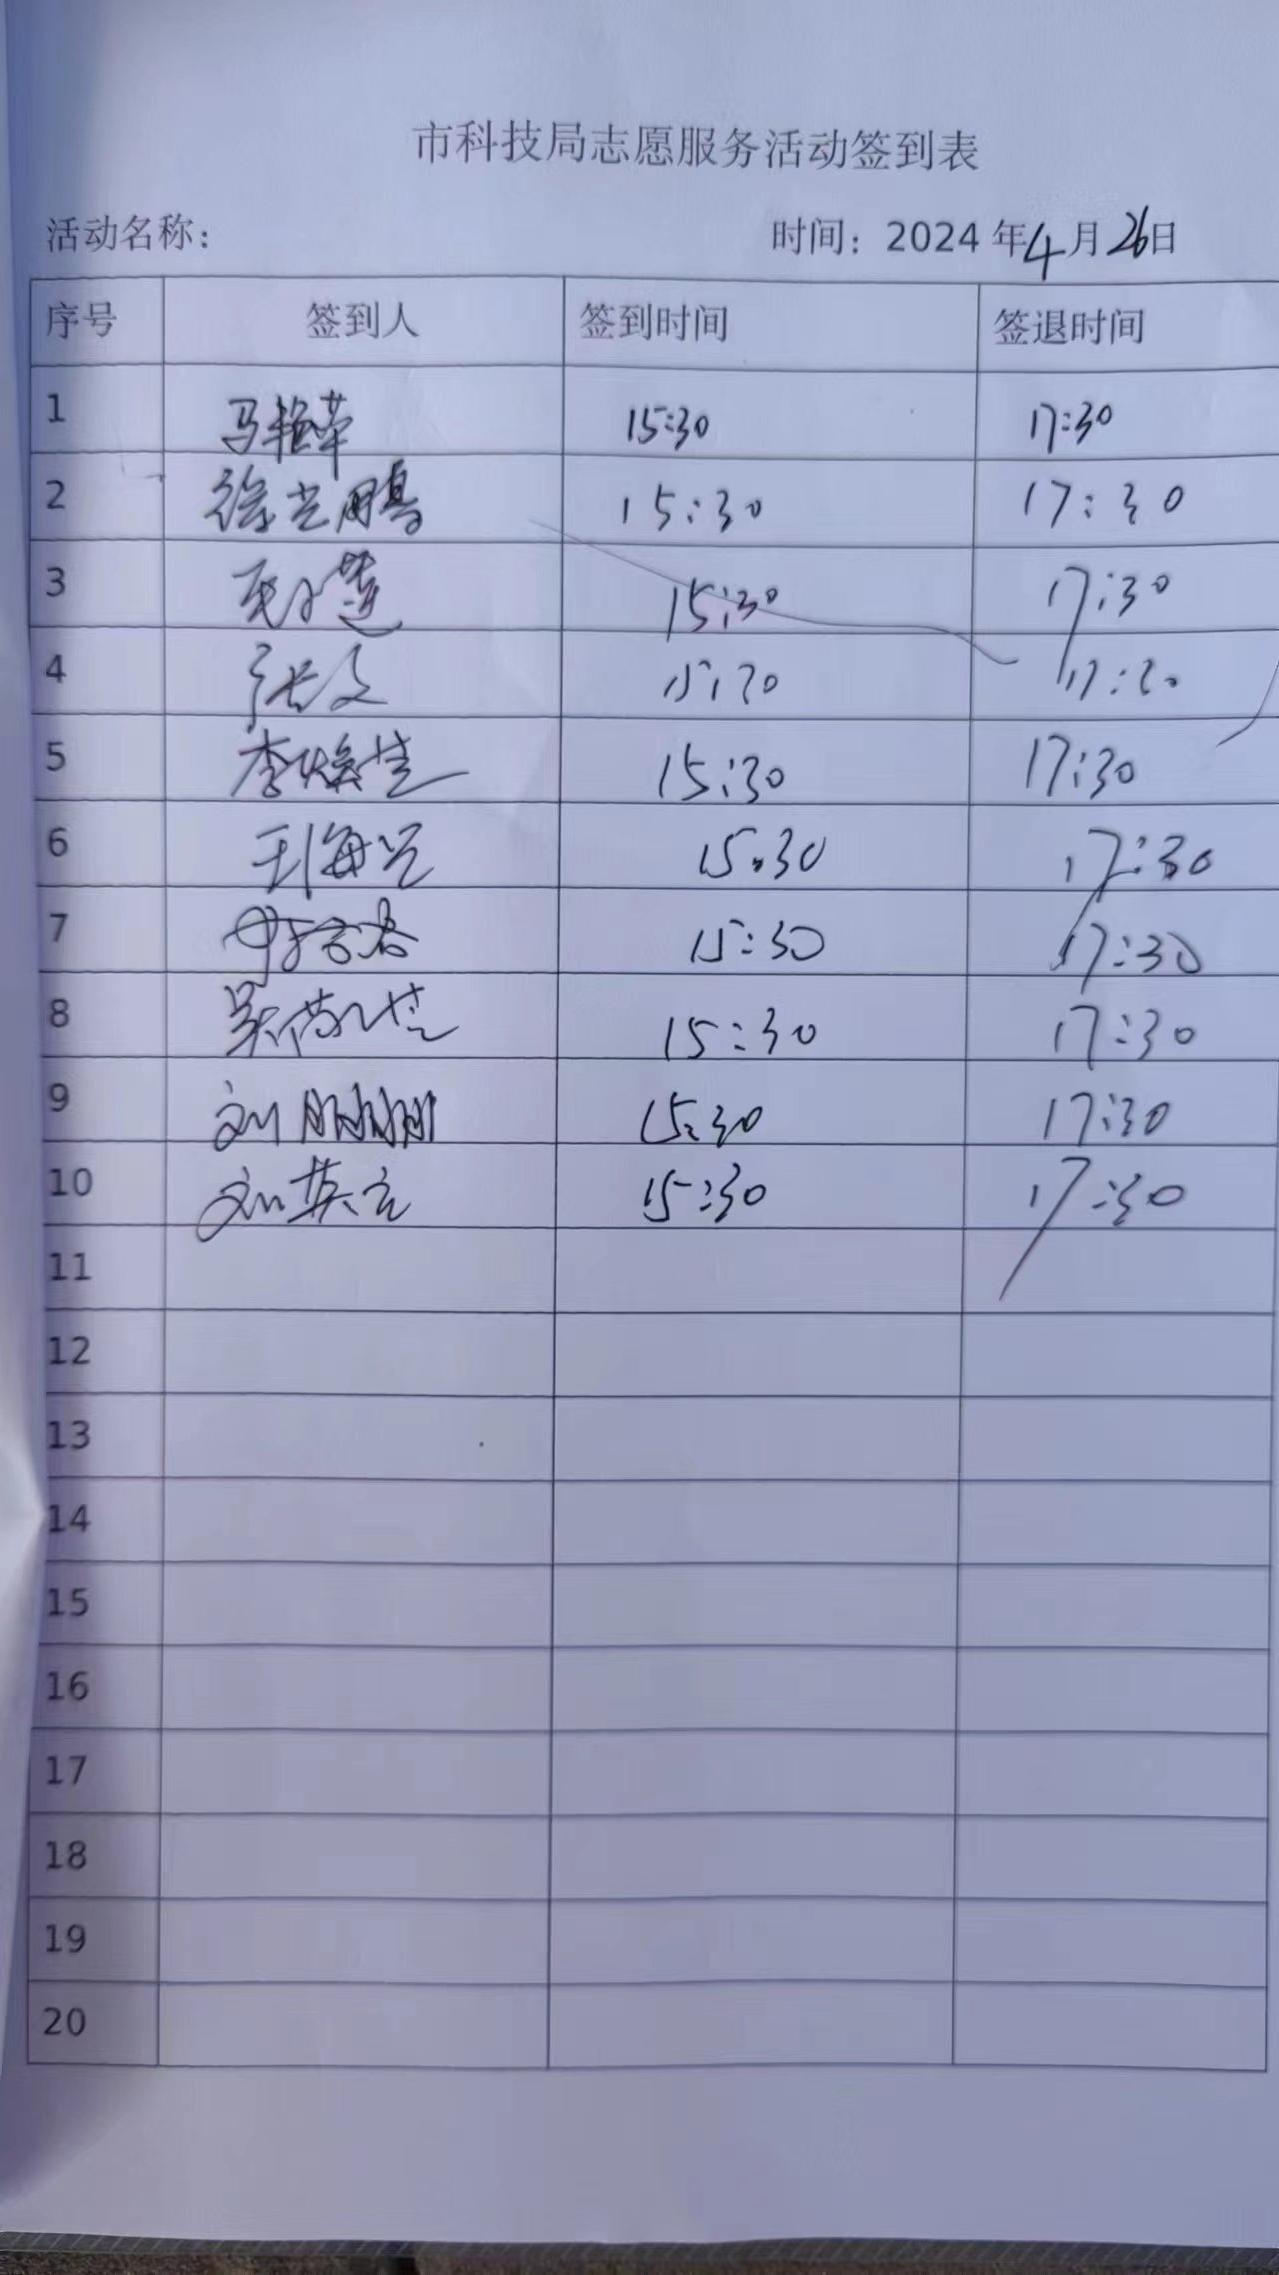 市科技局志愿服务活动签到表
活动名称： 时间：2024年4月26日
序号 签到人 签到时间 签退时间
1 马艳苹 15:30 17:30
2 徐光鹏 15:30 17:30
3 15:30 17:30
4 张文 15:30 17:30
5 李焕芝 15:30 17:30
6 王海兰 15:30 17:30
7 15:30 17:30
8 吴 15:30 17:30
9 刘朋朋 15:30 17:30
10 刘英立 15:30 17:30
11
12
13
14
15
16
17
18
19
20